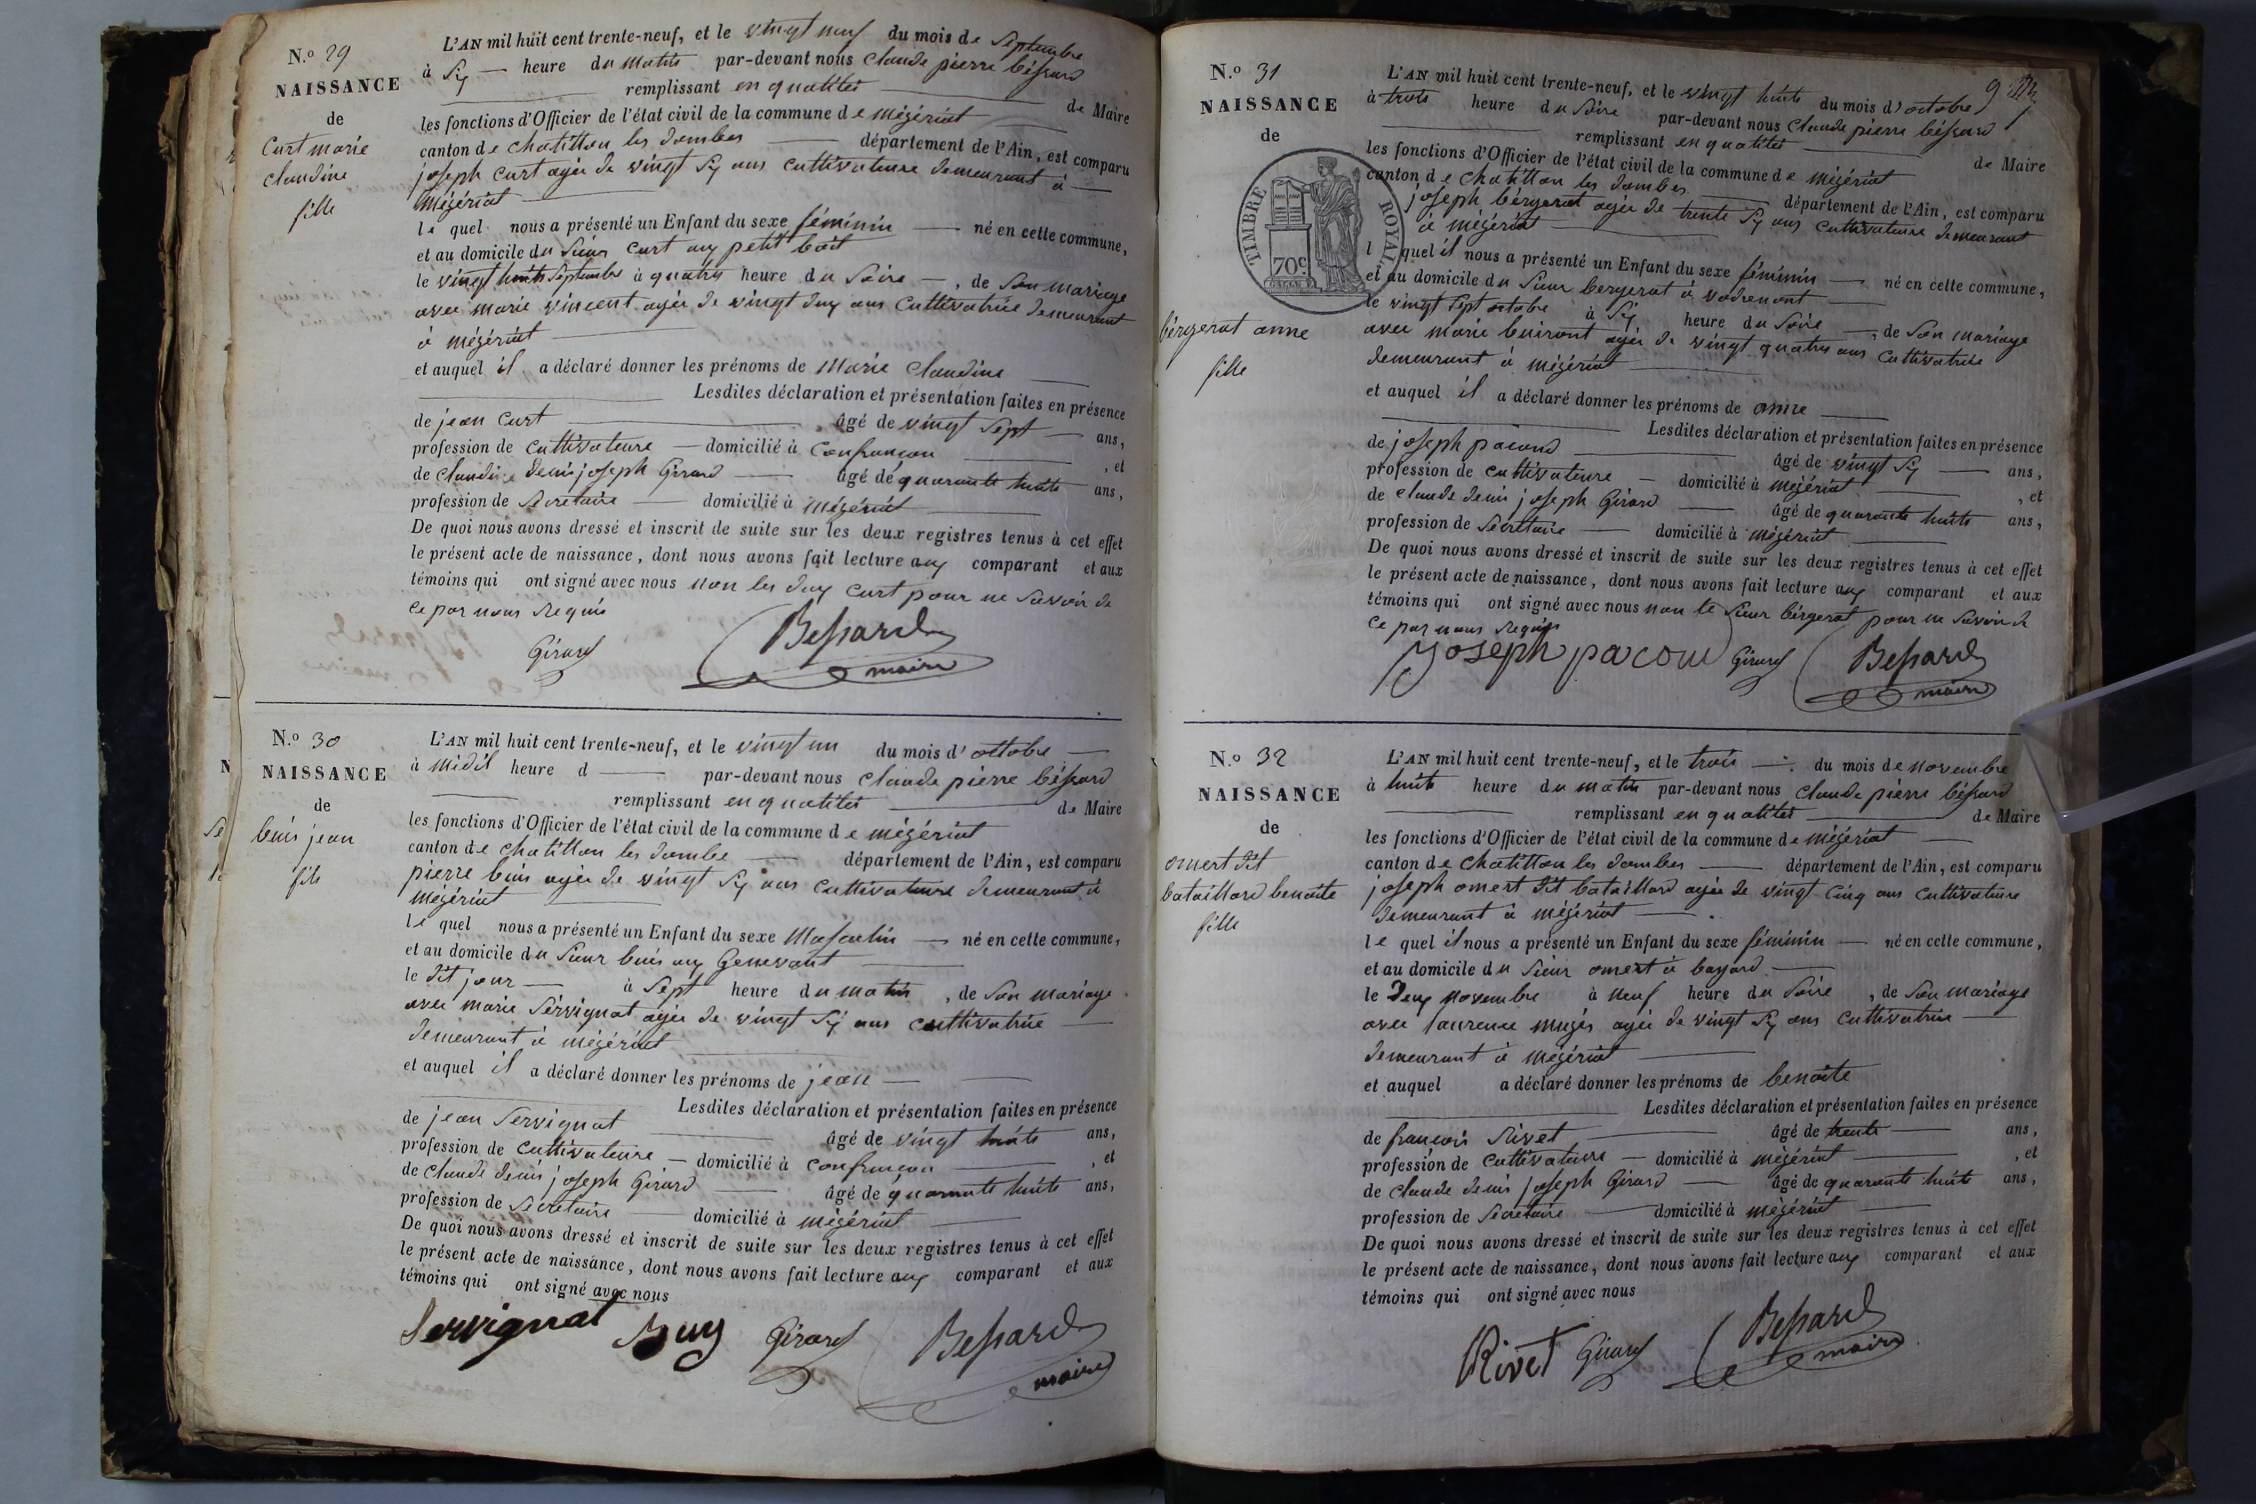 N.o 29
NAISSANCE
de
Curt marie
claudine
fille
L'AN mil huit cent trente-neuf, et le vingt neuf du mois de Septembre
à Six heure du matin par-devant nous Claude pierre béssard
remplissant en qualités de Maire
les fonctions d'Officier de l'état civil de la commune de mézériat
canton de chatillon les dombes département de l'Ain, est comparu
joseph Curt agée de vingt Six ans Cultivateure demeurant à
Mézériat
le quel nous a présenté un Enfant du sexe féminin né en cette commune,
et au domicile du Sieur Curt aux petit bois
le vingt huit Septembre à quatre heure du Soire, de Son mariage
avec marie vincent agée de vingt deux ans Cultivatrice demeurant
à mézériat
et auquel il a déclaré donner les prénoms de Marie Claudine
Lesdites déclaration et présentation faites en présence
de jean Curt âgé de vingt Sept ans,
profession de Cultivateure domicilié à Confrançon, et
de Claude denis joseph Girard âgé de quarante huite ans,
profession de Secretaire domicilié à mézériat
De quoi nous avons dressé et inscrit de suite sur les deux registres tenus à cet effet
le présent acte de naissance, dont nous avons fait lecture aux comparant et aux
témoins qui ont signé avec nous non les deux Curt pour ne Savoir de
ce par nous Requis
Girard Bessard
maire
N.o 30
NAISSANCE
de
buis jean
fils
L'AN mil huit cent trente-neuf, et le vingt un du mois d'octobre
à midil heure d par-devant nous Claude pierre béssard
remplissant en qualités de Maire
les fonctions d'Officier de l'état civil de la commune de mézériat
canton de chatillon les dombe département de l'Ain, est comparu
pierre buis agée de vingt Six ans Cultivateure demeurant à
Mézériat
le quel nous a présenté un Enfant du sexe Masculin né en cette commune,
et au domicile du Sieur buis aux Genevant
le dit jour à Sept heure du matin, de Son mariage
avec marie Servignat agée de vingt Six ans cultivatrice
demeurant à mézériat
et auquel il a déclaré donner les prénoms de jean
Lesdites déclaration et présentation faites en présence
de jean Servignat âgé de vingt huite ans,
profession de Cultivateure domicilié à Confrançon, et
de Claude denis joseph Girard âgé de quarante huite ans,
profession de Secretaire domicilié à mézériat
De quoi nous avons dressé et inscrit de suite sur les deux registres tenus à cet effet
le présent acte de naissance, dont nous avons fait lecture aux comparant et aux
témoins qui ont signé avec nous
Servignat Buy Girard Bessard
maire
N.o 31
NAISSANCE
de
TIMBRE ROYAL
70c
bérgerat anne
fille
9
L'AN mil huit cent trente-neuf, et le vingt huite du mois d'octobre
à trois heure du Soire par-devant nous Claude pierre béssard
remplissant en qualités de Maire
les fonctions d'Officier de l'état civil de la commune de mézériat
canton de chatillon les dombes département de l'Ain, est comparu
joseph bérgerat agée de trente Six ans Cultivateure demeurant
à mézériat
l quel il nous a présenté un Enfant du sexe féminin né en cette commune,
et au domicile du Sieur bergerat à vadrenont
le vingt Sept octobre à Six heure du Soire, de Son mariage
avec marie buiront agée de vingt quatres ans Cultivatrice
demeurant à mézériat
et auquel il a déclaré donner les prénoms de anne
Lesdites déclaration et présentation faites en présence
de joseph pacoud âgé de vingt Six ans,
profession de cultivateure domicilié à mézériat, et
de Claude denis joseph Girard âgé de quarante huite ans,
profession de Secrétaire domicilié à mézériat
De quoi nous avons dressé et inscrit de suite sur les deux registres tenus à cet effet
le présent acte de naissance, dont nous avons fait lecture aux comparant et aux
témoins qui ont signé avec nous non le Sieur bérgerat pour ne Savoir de
ce par nous Requis
joseph pacoud Girard Bessard
maire
N.o 32
NAISSANCE
de
omert dit
bataillard benoite
fille
L'AN mil huit cent trente-neuf, et le trois du mois de novembre
à huite heure du matin par-devant nous Claude pierre béssard
remplissant en qualités de Maire
les fonctions d'Officier de l'état civil de la commune de mézériat
canton de Chatillon les dombes département de l'Ain, est comparu
joseph omert dit bataillard agée de vingt Cinq ans Cultivateure
demeurant à mézériat
le quel il nous a présenté un Enfant du sexe féminin né en cette commune,
et au domicile du Sieur omert à bayard
le Deux novembre à neuf heure du Soire, de Son mariage
avec laurence mugés agée de vingt Six ans Cultivatrice
demeurant à mézériat
et auquel a déclaré donner les prénoms de benoite
Lesdites déclaration et présentation faites en présence
de françois Rivet âgé de trente ans,
profession de Cultivateure domicilié à mézériat, et
de Claude denis joseph Girard âgé de quarante huite ans,
profession de Secretaire domicilié à mézériat
De quoi nous avons dressé et inscrit de suite sur les deux registres tenus à cet effet
le présent acte de naissance, dont nous avons fait lecture aux comparant et aux
témoins qui ont signé avec nous
Rivet Girard Bessard
maire